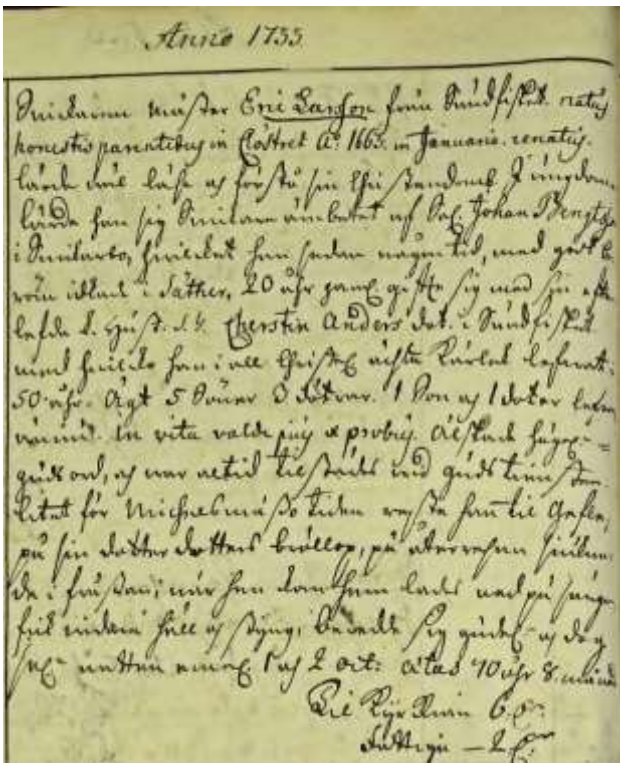 Anno 1733
Snickaren Mäster Eric Larsson från Sundfisket. natus
honestis parentibus in Clöstret A: 1663. in Januario. renatus.
lärde wäl läsa och förstå sin Christendomb. I ungdomen
lärde han sig Snickare ämbetet af Sal. Johan Bengtz
i Snickarbo, hwilcket han sedan någon tid, med godt be
röm idkade i Säther. 20 åhr gam: giffte sig med sin efter
lefde k. Hust. d. G. Cherstin Anders dot. i Sundfisket
med hwilcken han i all Christel. ächta kärlek lefwat
50 åhr. Ägt 5 Söner 3 döttrar. 1 Son och 1 doter lefwa
ännu. In vita valde pius & probus. Älskade höge
guds ord, och war altid tilstädes wid guds tiensten.
litet för Michaelsmäso tiden reste han til Gefle,
på sin dotter dotters bröllop, på återresan siukna
de i frossan; när han kom hem lades ned på sänge
fick sedan håll och styng, beredde sig gudel. och dog
sal. natten emel. 1 och 2 oct: ætas 70 åhr 8. månad
Til Kyrkian 6 
Fattiga — 2